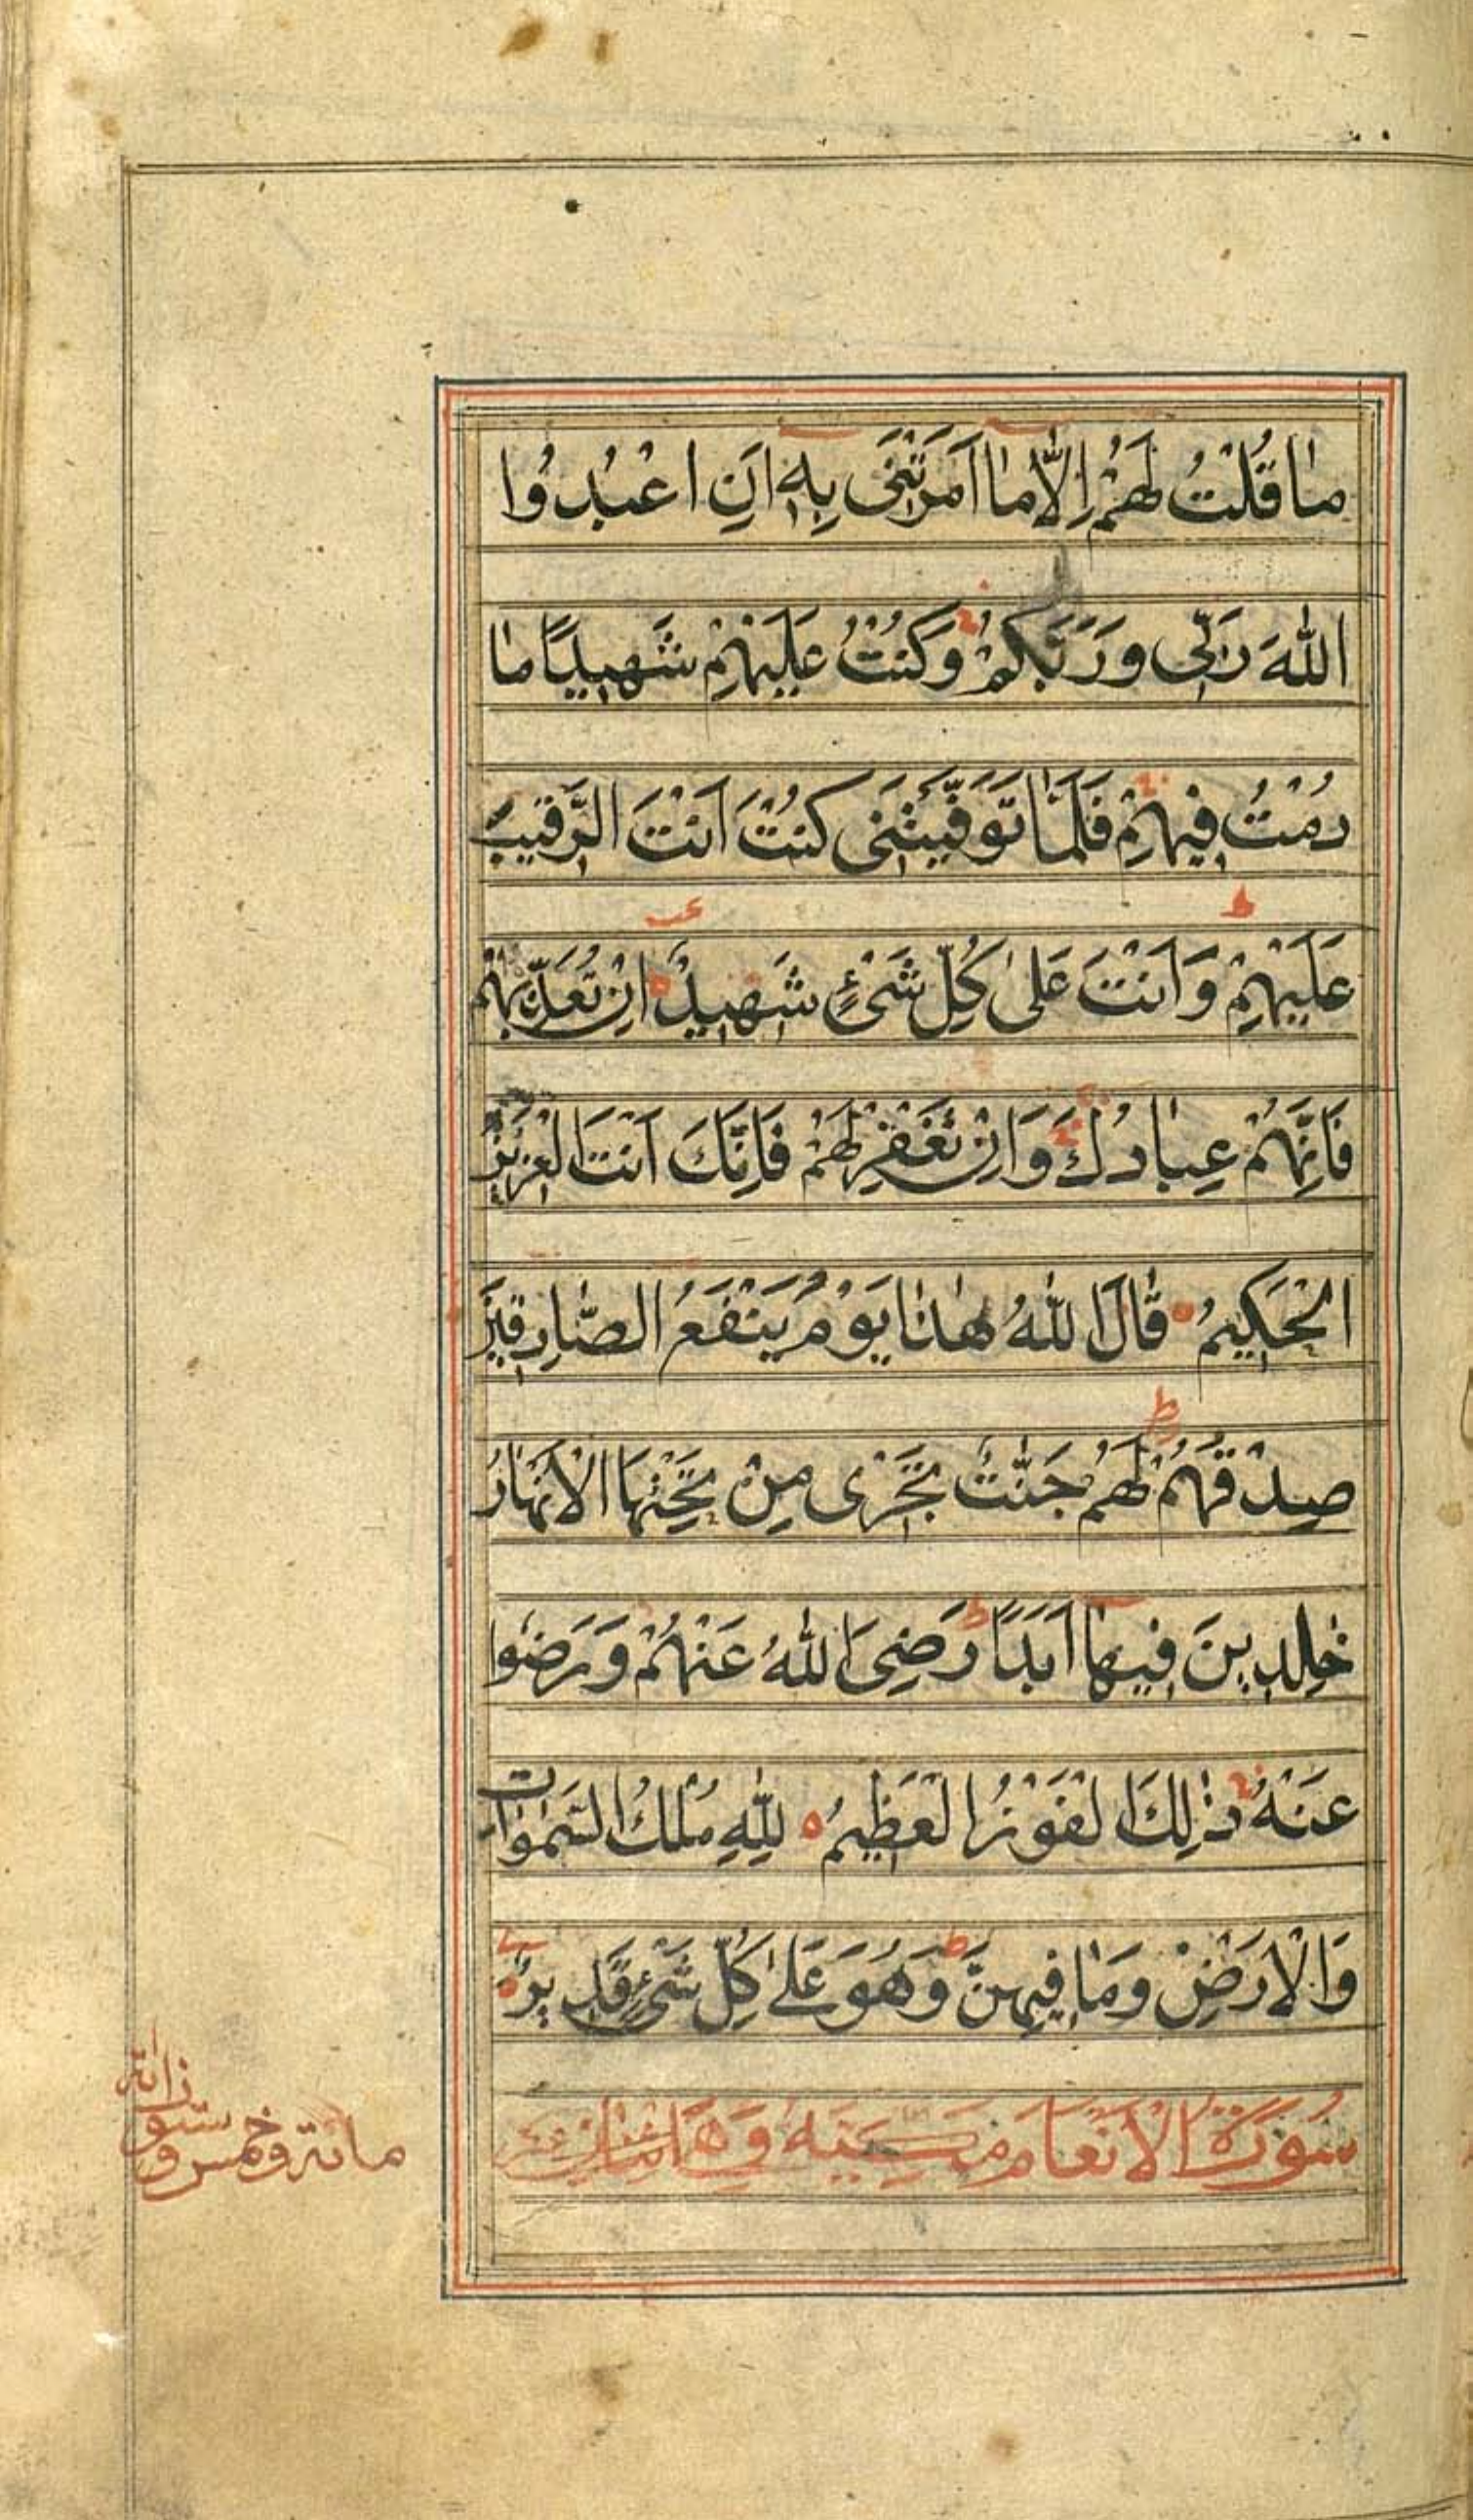 مَا قُلْتُ لَهُمْ اِلَّا مَا اَمَرْتَنَیْ بِهٖ اَنِ اعْبُدُوا
اللّٰهَ رَبِّی وَرَبَّكُمْ وَكُنْتُ عَلَیْهِمْ شَهِیْدًا مَا
دُمْتُ فِیْهِمْ فَلَمَّا تَوَفَّیْتَنَی كُنْتَ اَنْتَ الرَّقِیْبَ
عَلَیْهِمْ وَاَنْتَ عَلٰی كُلِّ شَیْءٍ شَهِیْدٌ ه اِنْ تُعَذِّبْهُمْ
فَاِنَّهُمْ عِبَادُكَ وَاِنْ تَغْفِرْ لَهُمْ فَاِنَّكَ اَنْتَ الْعَزِیْزُ
الْحَكِیْمُ ه قَالَ اللّٰهُ هٰذَا یَوْمُ یَنْفَعُ الصَّادِقِیْنَ
صِدْقُهُمْ ط لَهُمْ جَنّٰتٌ تَجْرِی مِنْ تَحْتِهَا الْاَنْهَارُ
خٰلِدِیْنَ فِیْهَا اَبَدًا ط رَضِیَ اللّٰهُ عَنْهُمْ وَرَضُوا
عَنْهُ ط ذٰلِكَ الْفَوْزُ الْعَظِیْمُ ه لِلّٰهِ مُلْكُ السَّمٰوَات
وَالْاَرْضِ وَمَا فِیْهِنَّ ط وَهُوَ عَلٰی كُلِّ شَیْءٍ قَدِیْرٌ ه
سُوْرَةُ الْاَنْعَامِ مَكِّیَّةٌ وَهِیَ
مائة وخمس وستون